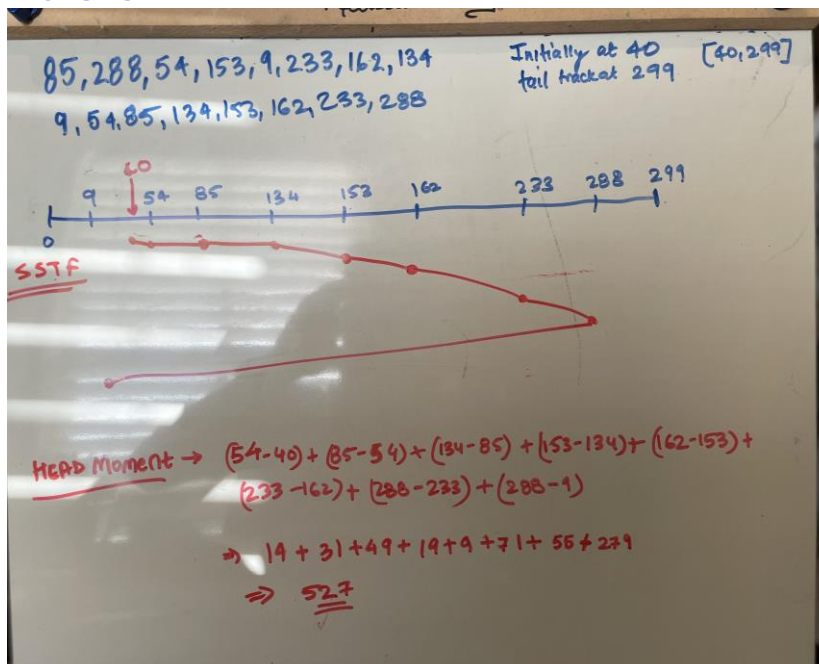 85, 288, 54, 153, 9, 233, 162, 134
Initially at 40 [40, 299]
tail track at 299
9, 54, 85, 134, 153, 162, 233, 288
40
9 54 85 134 153 162 233 288 299
0
SSTF
HEAD Moment → (54-40) + (85-54) + (134-85) + (153-134) + (162-153) +
(233-162) + (288-233) + (288-9)
⇒ 14 + 31 + 49 + 19 + 9 + 71 + 55 + 279
⇒ 527